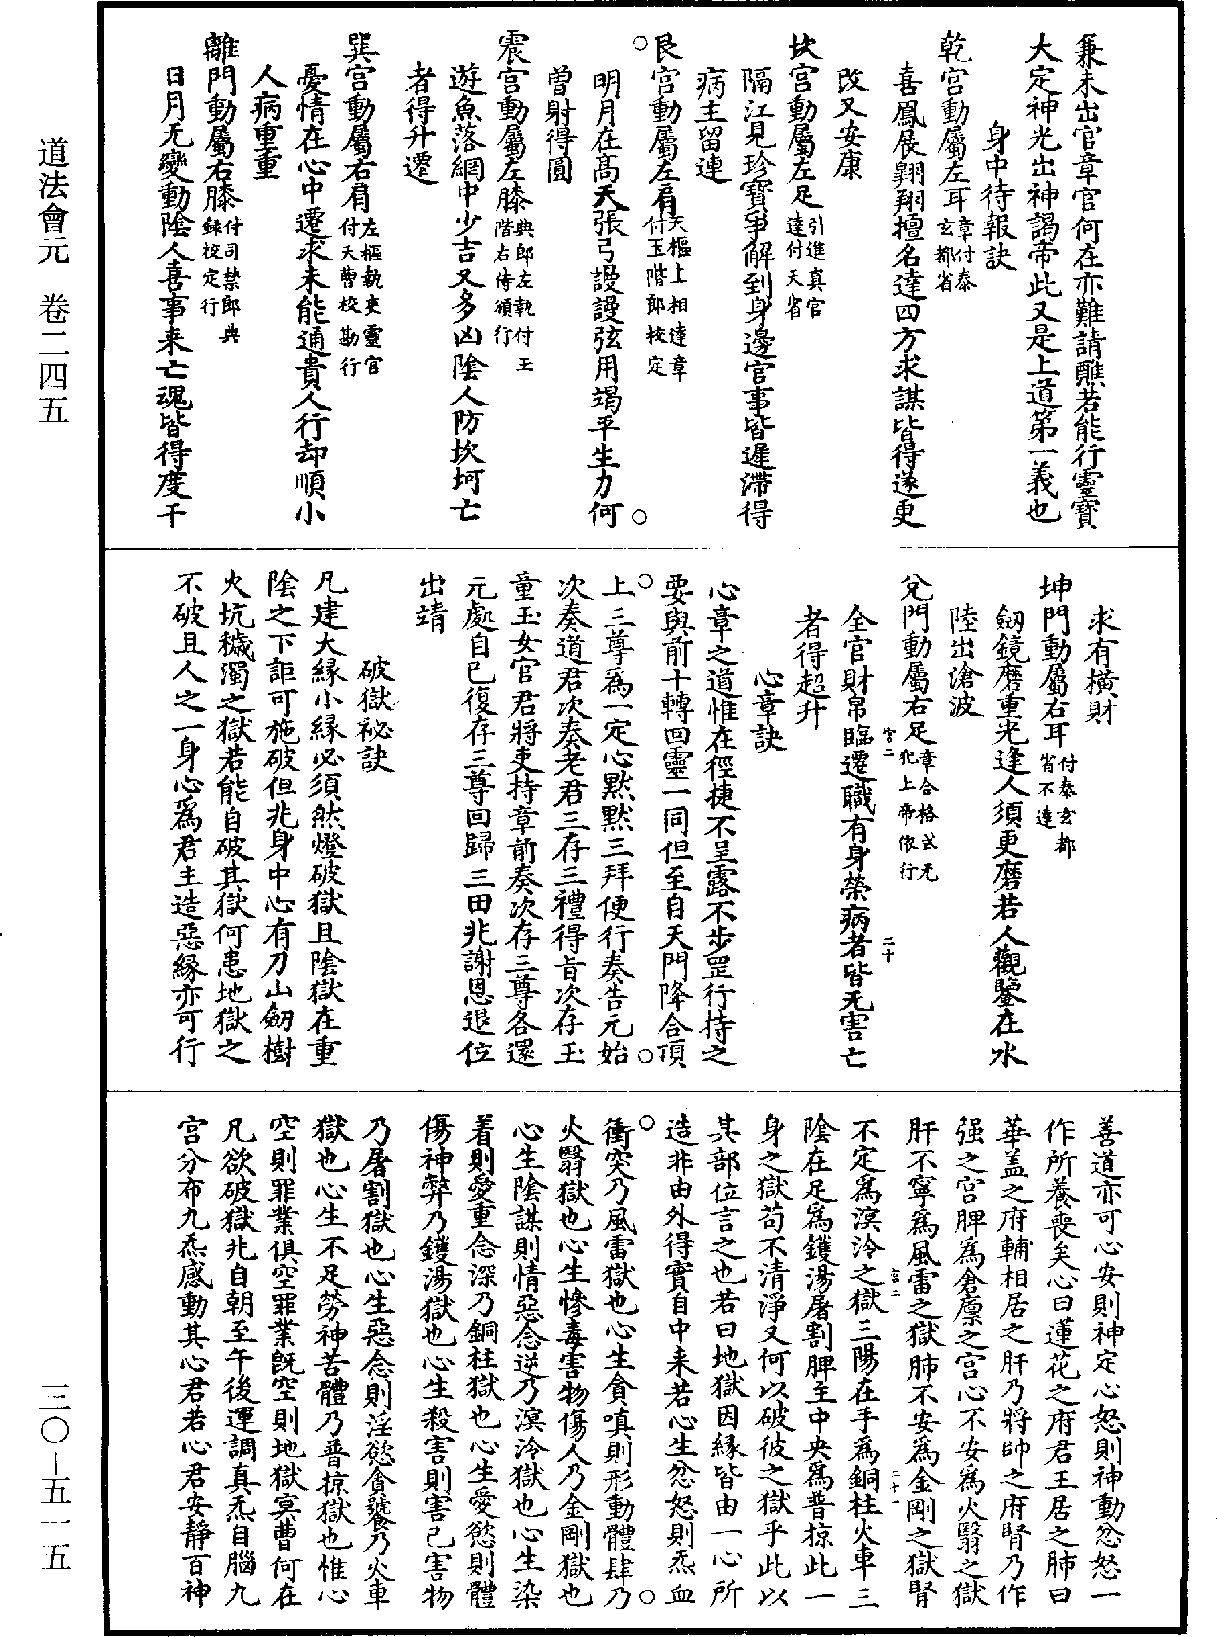 兼未出官章官何在亦難請醮若能行靈寶
大定神光出神謁帝此又是上道第一義也
身中待報訣
乾宮動屬左耳章付泰玄都省
喜鳳展翱翔擅名達四方求謀皆得遂更
改又安康
坎宮動屬左足引進真官達付天省
隔江見珍寶爭解到身邊官事皆遲滯得
病主留連
艮宮動屬左肩天樞上相達章付玉階郎校定
○明月在高天張弓謾謾弦用竭平生力何○
曾射得圓
震宮動屬左膝典郎左執付玉階右侍頒行
遊魚落網中少吉又多凶陰人防坎坷亡
者得升遷
巽宮動屬右肩左樞執吏靈官付天曹校勘行
憂情在心中遷求未能通貴人行却順小
人病重重
離門動屬右膝付司禁郎典錄校定行
日月无變動陰人喜事来亡魂皆得度千
求有橫財
坤門動屬右耳付泰玄都省不達
劒鏡磨重光逢人須更磨若人觀鑒在水
陸出滄波
兌門動屬右足章合格式元化上帝依行
全官財帛臨遷職有身榮病者皆无害亡
者得超升
心章訣
心章之道惟在徑捷不呈露不步罡行持之
要與前十轉回靈一同但至自天門降合頂
○上三尊為一定心黙黙三拜便行奏告元始○
次奏道君次奏老君三存三禮得旨次存玉
童玉女官君將吏持章前奏次存三尊各還
元處自己復存三尊回歸三田兆謝恩退位
出靖
破獄祕訣
凡建大緣小緣必須然燈破獄且陰獄在重
陰之下詎可施破但兆身中心有刀山劒樹
火坑穢濁之獄若能自破其獄何患地獄之
不破且人之一身心為君主造惡緣亦可行
善道亦可心安則神定心怒則神動忿怒一
作所養喪矣心曰蓮花之府君王居之肺曰
華蓋之府輔相居之肝乃將帥之府腎乃作
强之宮脾為倉廩之宮心不安為火翳之獄
肝不寧為風雷之獄肺不安為金剛之獄腎
不定為溟泠之獄三陽在手為銅柱火車三
陰在足為鑊湯屠割脾至中央為普掠此一
身之獄苟不清淨又何以破彼之獄乎此以
其部位言之也若曰地獄因緣皆由一心所
造非由外得實自中来若心生忿怒則炁血
○衝突乃風雷獄也心生貪嗔則形動體肆乃○
火翳獄也心生慘毒害物傷人乃金剛獄也
心生陰謀則情惡念逆乃溟泠獄也心生染
着則愛重念深乃銅柱獄也心生愛慾則體
傷神弊乃鑊湯獄也心生殺害則害己害物
乃屠割獄也心生惡念則淫慾貪饕乃火車
獄也心生不足勞神苦體乃普掠獄也惟心
空則罪業俱空罪業旣空則地獄冥曹何在
凡欲破獄兆自朝至午後運調真炁自腦九
宮分布九炁感動其心君若心君安靜百神
道法會元　卷二四五
三〇—五一五